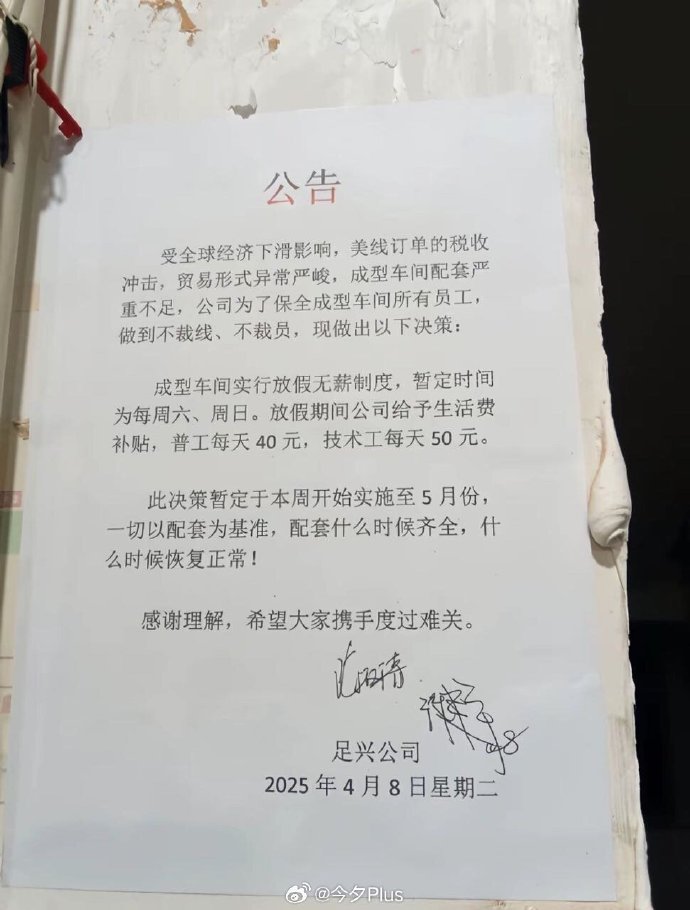 公告
受全球经济下滑影响，美线订单的税收
冲击，贸易形式异常严峻，成型车间配套严
重不足，公司为了保全成型车间所有员工，
做到不裁线、不裁员，现做出以下决策：
成型车间实行放假无薪制度，暂定时间
为每周六、周日。放假期间公司给予生活费
补贴，普工每天 40 元，技术工每天 50 元。
此决策暂定于本周开始实施至 5 月份，
一切以配套为基准，配套什么时候齐全，什
么时候恢复正常！
感谢理解，希望大家携手度过难关。
足兴公司
2025 年 4 月 8 日星期二
@今夕Plus